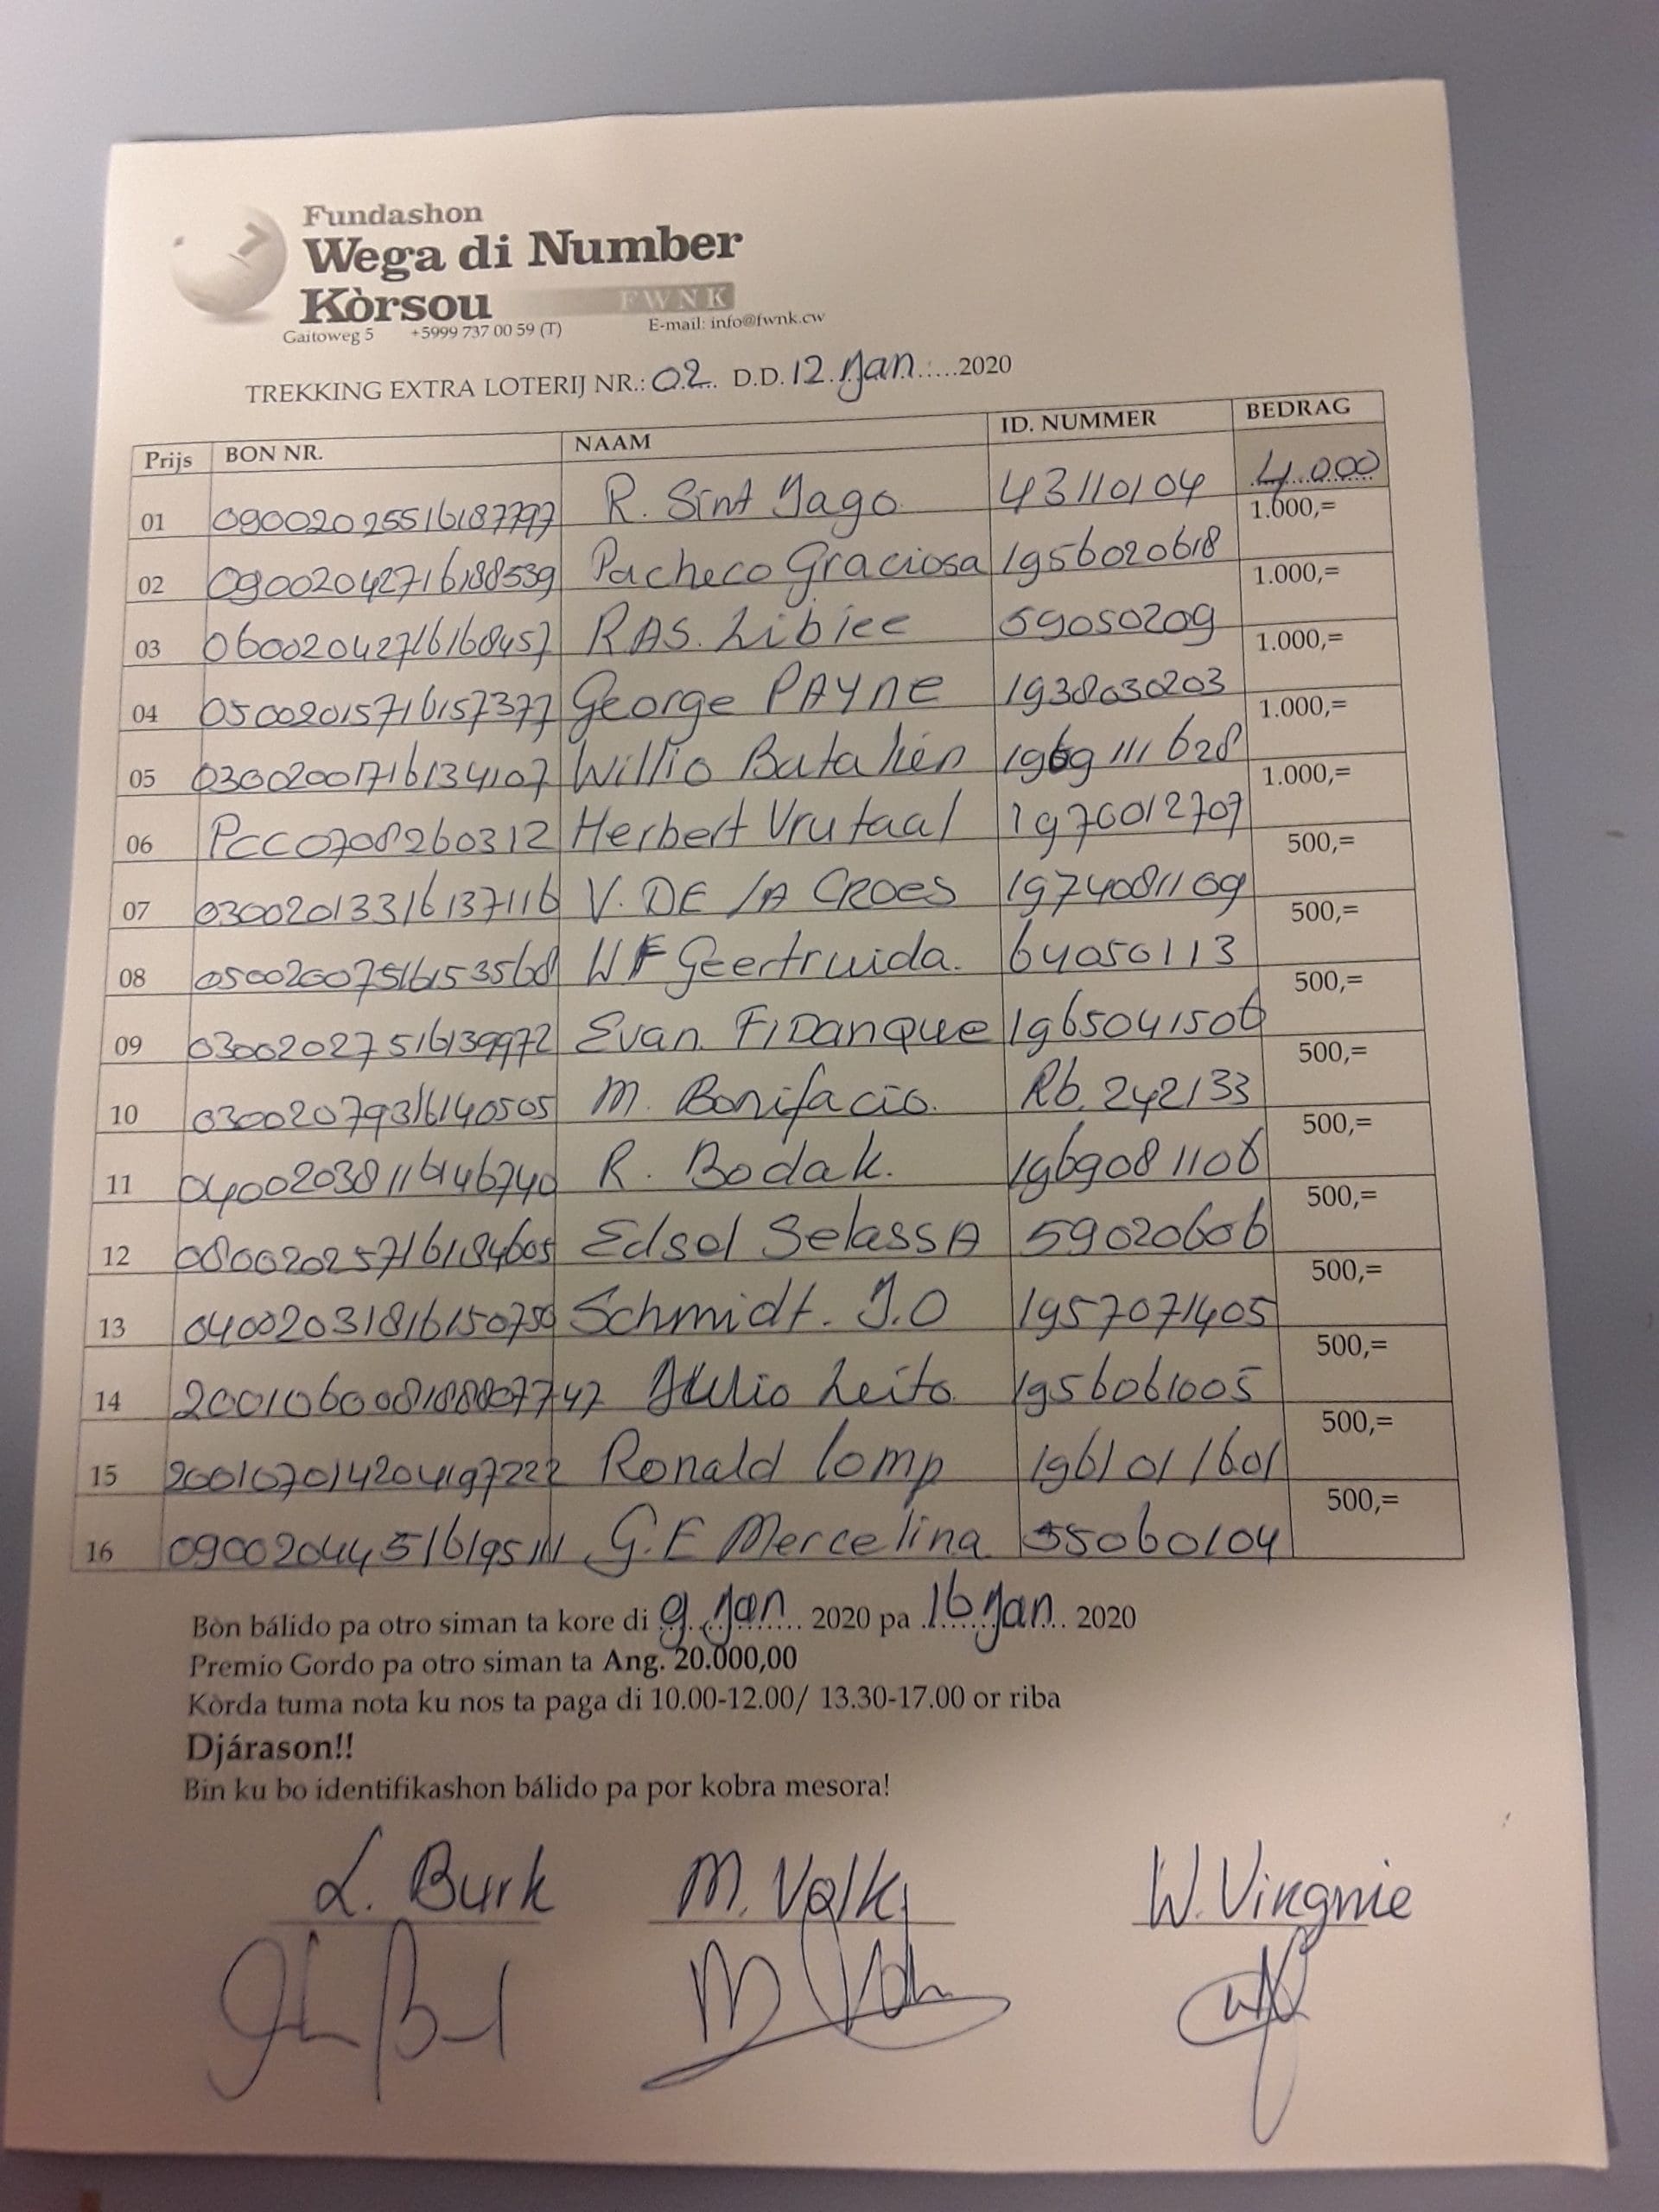 Fundashon
Wega di Number
Kòrsou FWNK
Gaitoweg 5 +5999 737 00 59 (T) E-mail: info@fwnk.cw
TREKKING EXTRA LOTERIJ NR.: 02 D.D. 12 Jan 2020
Prijs BON NR. NAAM ID. NUMMER BEDRAG
01 09002025516187797 R. Sint Jago 43110104 4.000
02 09002042716188539 Pacheco Graciosa 1956020618 1.000,=
03 06002042716168457 RAS. Libiee 59050209 1.000,=
04 05002015716157377 George PAYNE 1938030203 1.000,=
05 03002001716134107 Willio Batalien 1969111628 1.000,=
06 PCC0708260312 Herbert Vrutaal 1970012707 1.000,=
07 03002013316137116 V. DE LA CROES 1974081109 500,=
08 05002007516153568 WF Geertruida. 64050113 500,=
09 03002027516139972 Evan FIDanque 1965041506 500,=
10 03002079316140505 M. Bonifacio. Rb. 242133 500,=
11 04002038116146740 R. Bodak. 1969081106 500,=
12 08002025716184605 Edsel SelassA 59020606 500,=
13 04002031816150750 Schmidt. J.O 1957071405 500,=
14 Julio Leito 1956061005 500,=
15 20010701420419722 Ronald lomp 1961011601 500,=
16 09002044516195111 G.E Mercelina 55060104 500,=
500,=
Bòn bálido pa otro siman ta kore di 9 Jan 2020 pa 16 Jan 2020
Premio Gordo pa otro siman ta Ang. 20.000,00
Kòrda tuma nota ku nos ta paga di 10.00-12.00/ 13.30-17.00 or riba
Djárason!!
Bin ku bo identifikashon bálido pa por kobra mesora!
L. Burk M. Valk W. Virginie